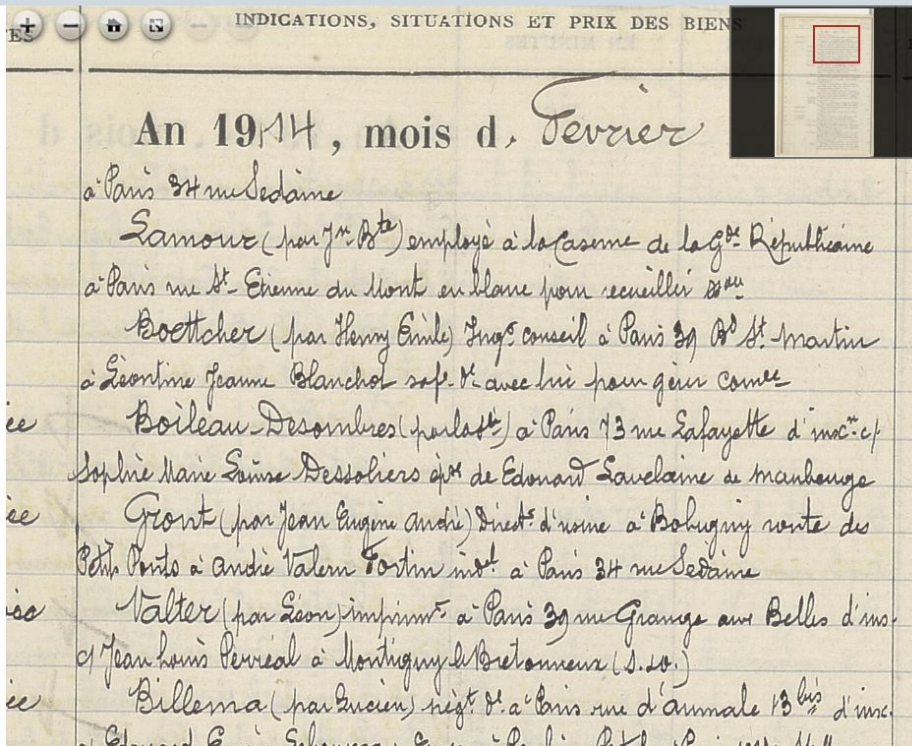 ES
INDICATIONS, SITUATIONS ET PRIX DES BIENS
An 1914, mois d. Fevrier
à Paris 34 rue Sedaine
Lamour (par Jn Bte) employé à la Caserne de la Gde Républicaine
à Paris rue St Etienne du Mont en blanc pour recueillir son
Boettcher (par Henry Emile) Ingr conseil à Paris 39 Bd St Martin
à Léontine Jeanne Blanchot sa fe dt avec lui pour gérer comce
ée Boileau-Desombres (par la sté) à Paris 73 rue Lafayette d'inscon c/
Sophie Marie Louise Dessoliers épse de Edouard Lavelaine de Maubeuge
ée Gront (par Jean Eugène André) Directr d'usine à Bobigny route des
Petits Ponts à André Valery Fortin indel à Paris 34 rue Sedaine
Valter (par Léon) imprimr à Paris 39 rue Grange aux Belles d'ins.
c/ Jean Louis Perréal à Montigny le Bretonneux (S.&O.)
ée Billema (par Lucien) négt dt à Paris rue d'Aumale 13 bis d'insc.